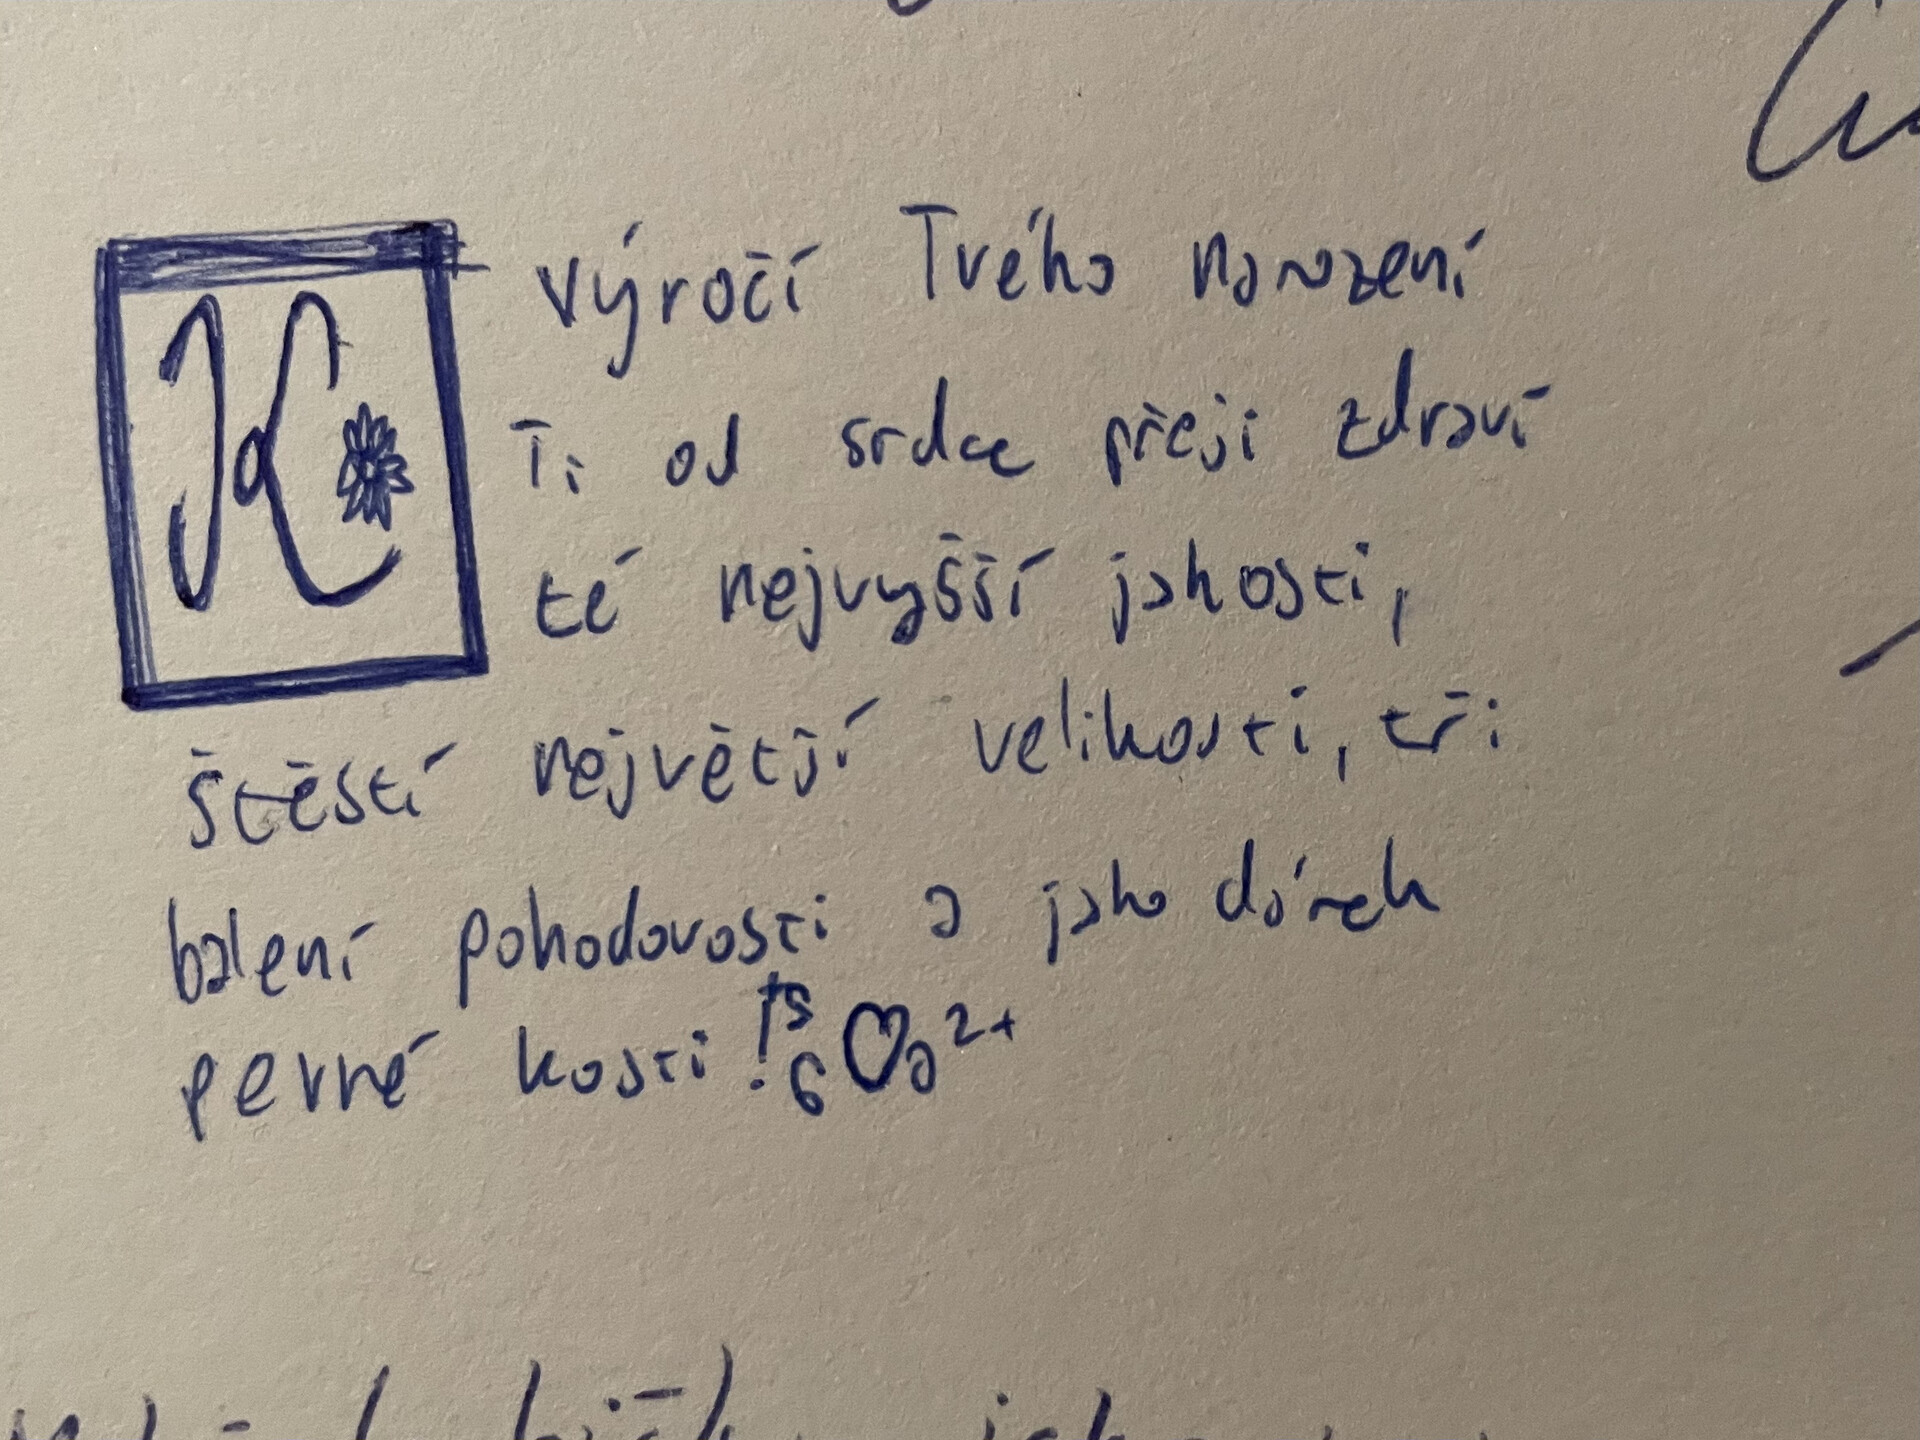 K výročí Tvého narození
Ti od srdce přeji zdraví
té nejvyšší jakosti,
štěstí největší velikosti, tři
balení pohodovosti a jako dárek
pevné kosti!